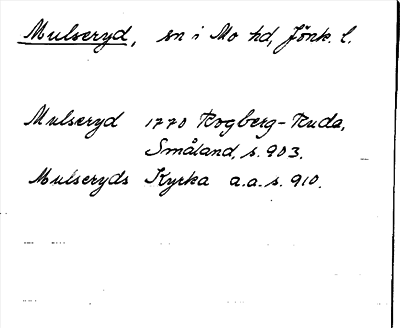 Mulseryd, sn i Mo hd, Jönk. l.
Mulseryd 1770 Rogberg-Ruda,
Småland, s. 903.
Mulseryds Kyrka a.a. s. 910.